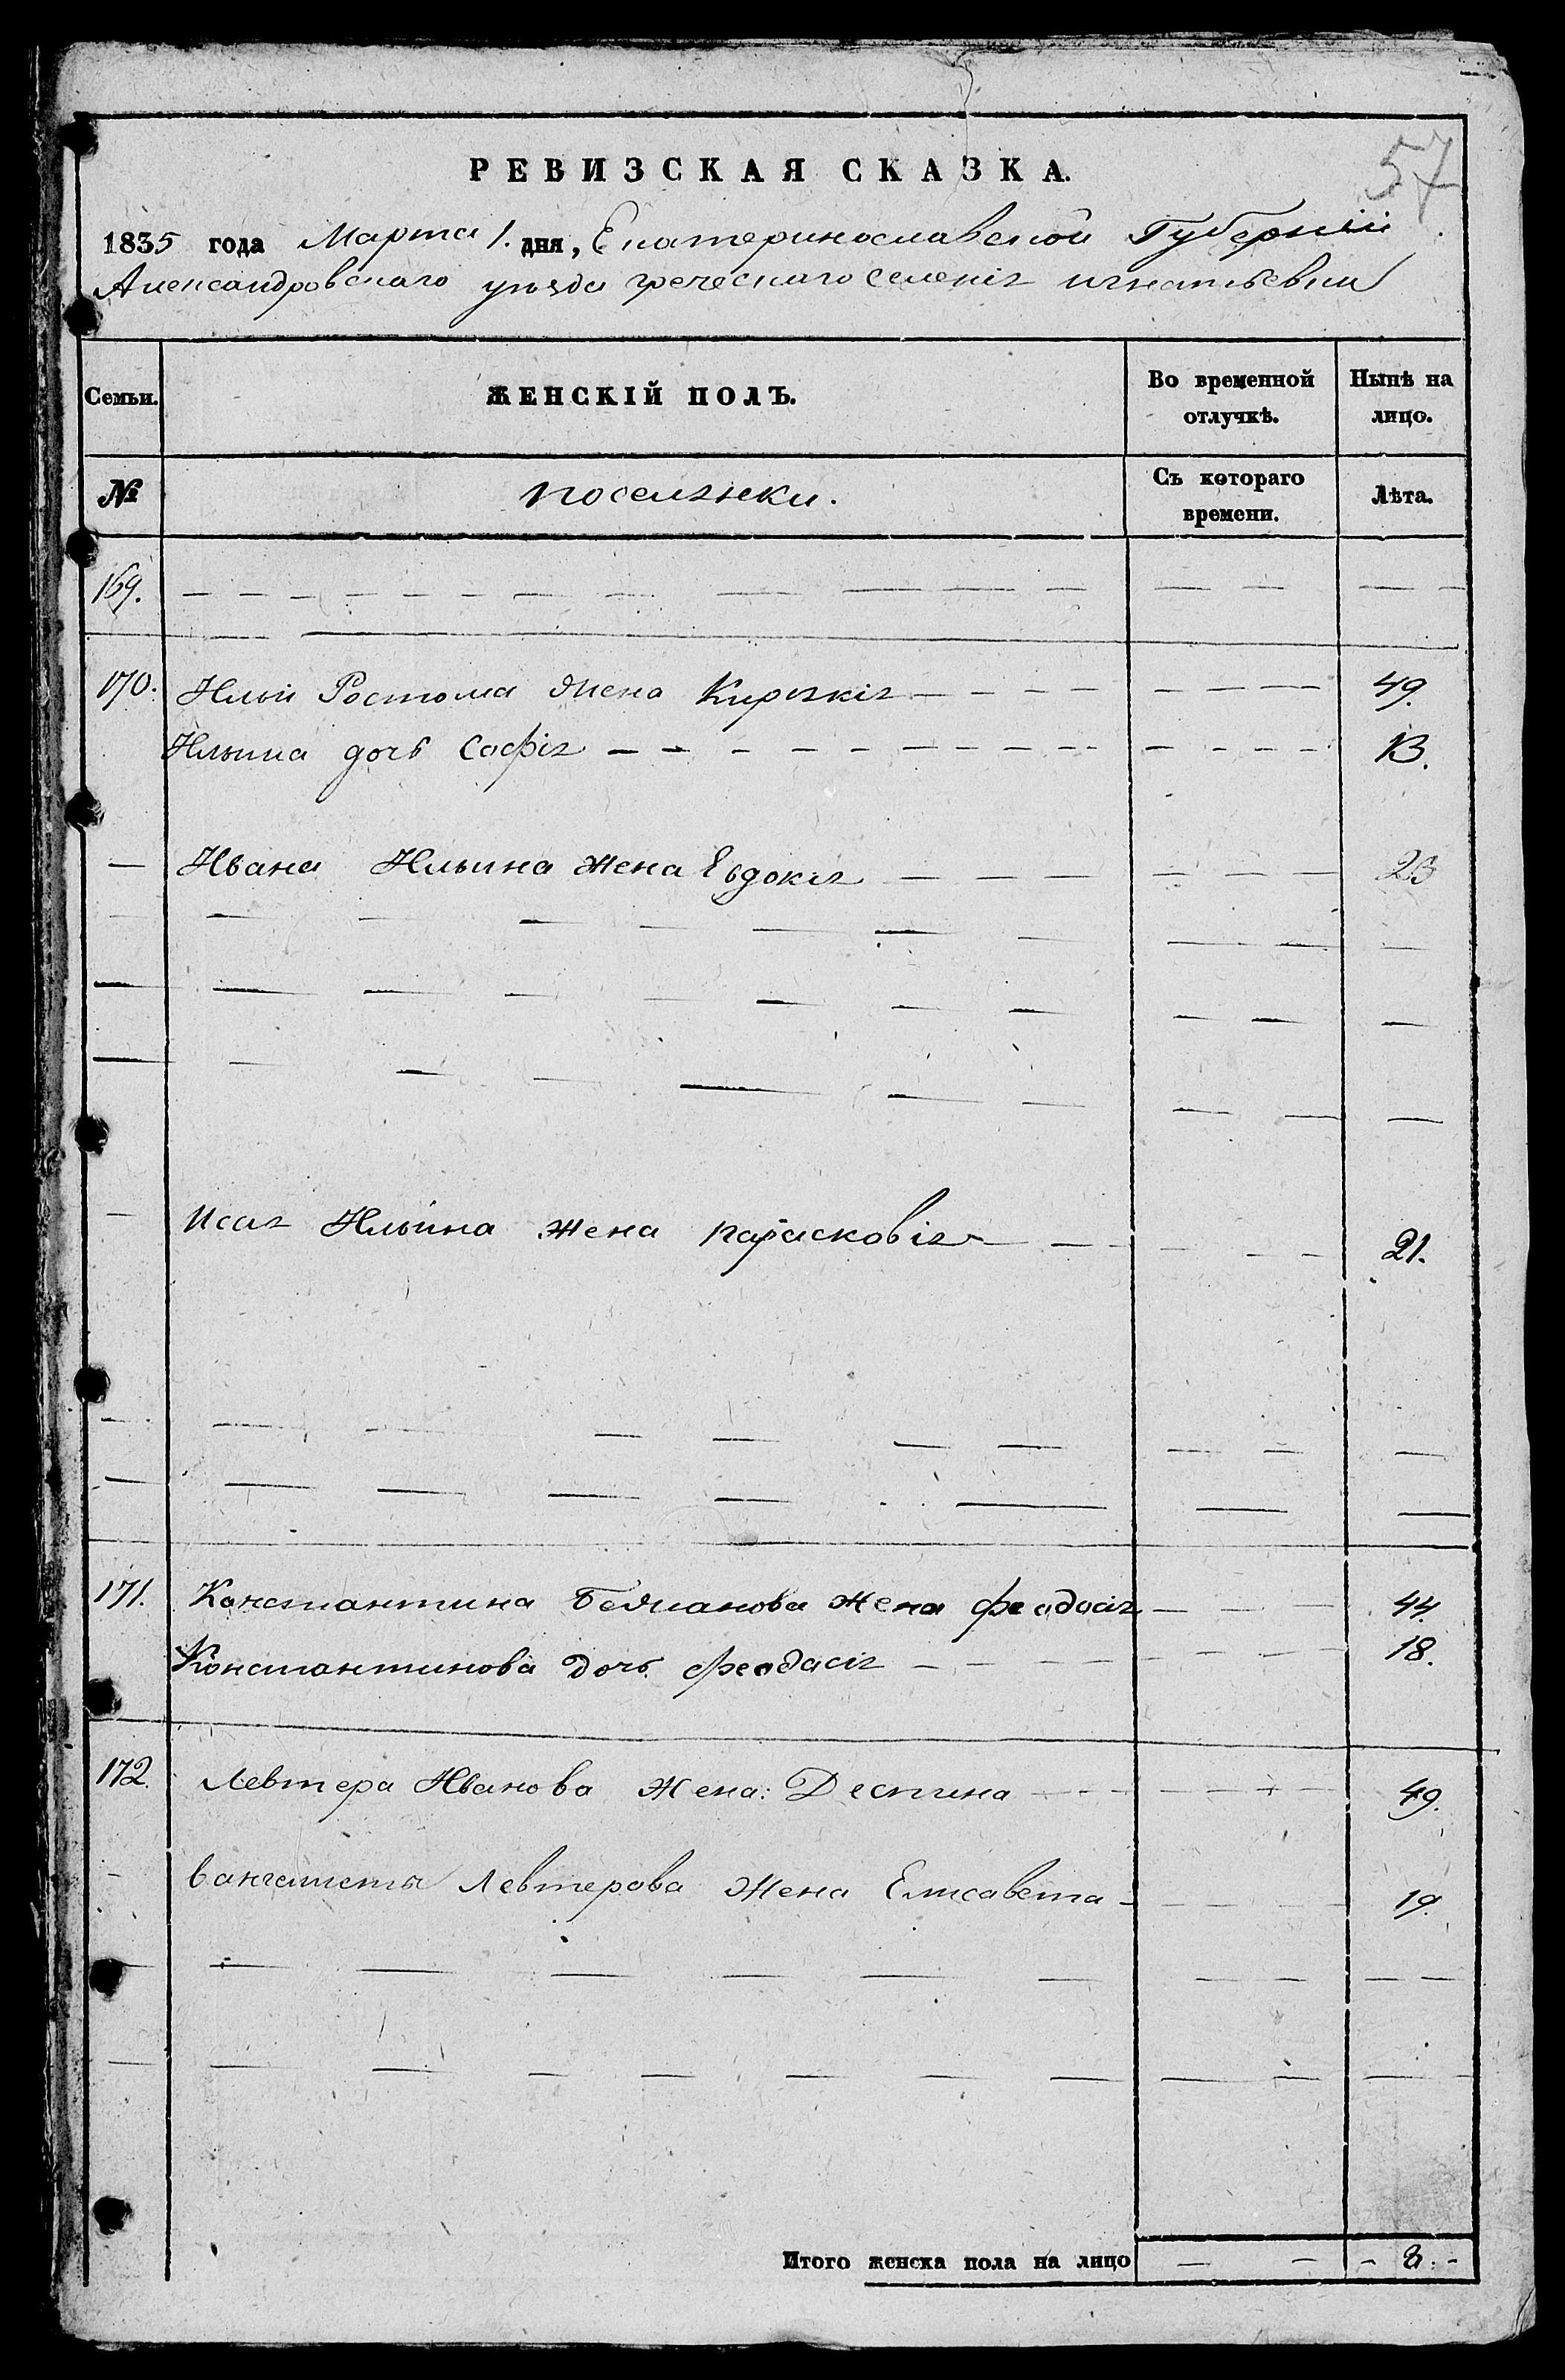 57
РЕВИЗСКАЯ СКАЗКА.
1835 года Марта 1. дня, Екатеринославской Губерніи
Александровскаго уѣзда греческаго селенія игнатьевки
Семьи. ЖЕНСКІЙ ПОЛЪ. Во временной отлучкѣ. Нынѣ на лицо.
№ поселянки. Съ котораго времени. Лѣта.
169.
170. Ильи Ростома жена Кирякія 49.
Ильина дочь Софія 13.
Ивана Ильина жена Евдокія 23
Исая Ильина жена парасковія 21.
171. Константина жена феодосія 44.
Константинова дочь феодасія 18.
172. Левтера Иванова жена: Деспина 49.
Левтерова жена Елисавета 19.
Итого женска пола на лицо 8.